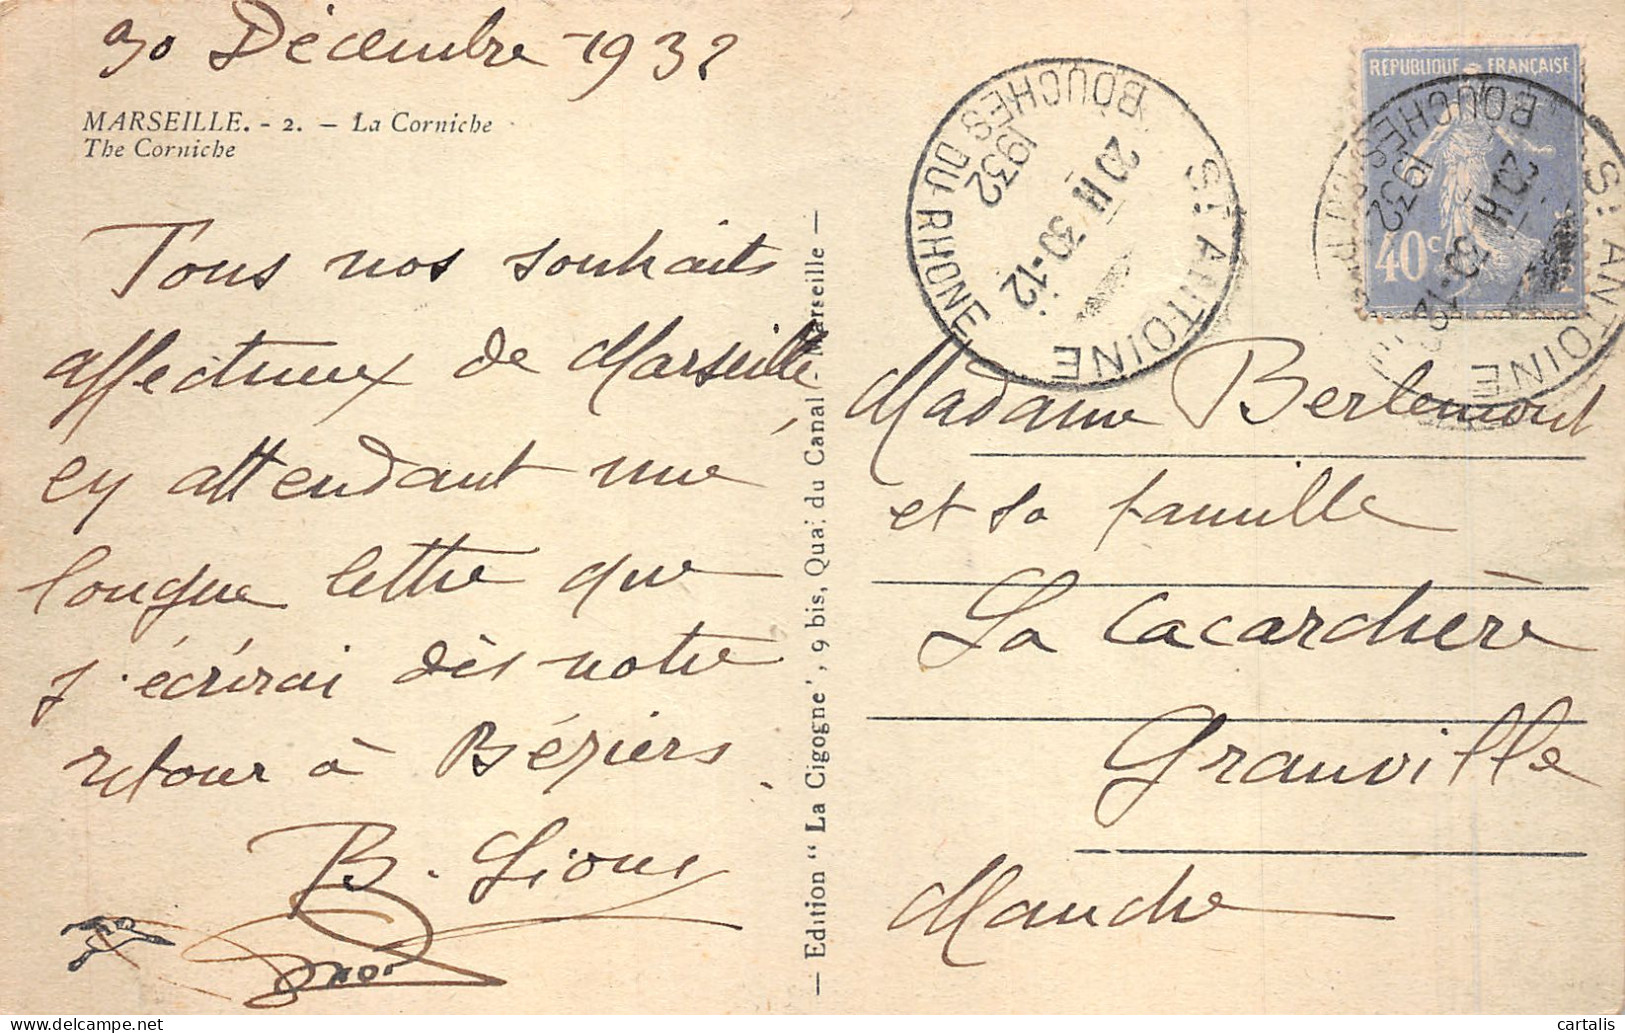 30 Décembre 1932
MARSEILLE. - 2. - La Corniche
The Corniche
Tous nos souhaits
affectueux de Marseille,
en attendant une
longue lettre que
j'écrirai dès notre
retour à Béziers.
B. Lions
— Edition “ La Cigogne ', 9 bis, Quai du Canal - Marseille —
RÉPUBLIQUE FRANÇAISE
40c
ST ANTOINE
20 H 30-12
1932
BOUCHES DU RHONE
ST ANTOINE
20 H 30-12
1932
BOUCHES DU RHONE
Madame Berlemont
et sa famille
La Cacardière
Granville
Manche
cartalis